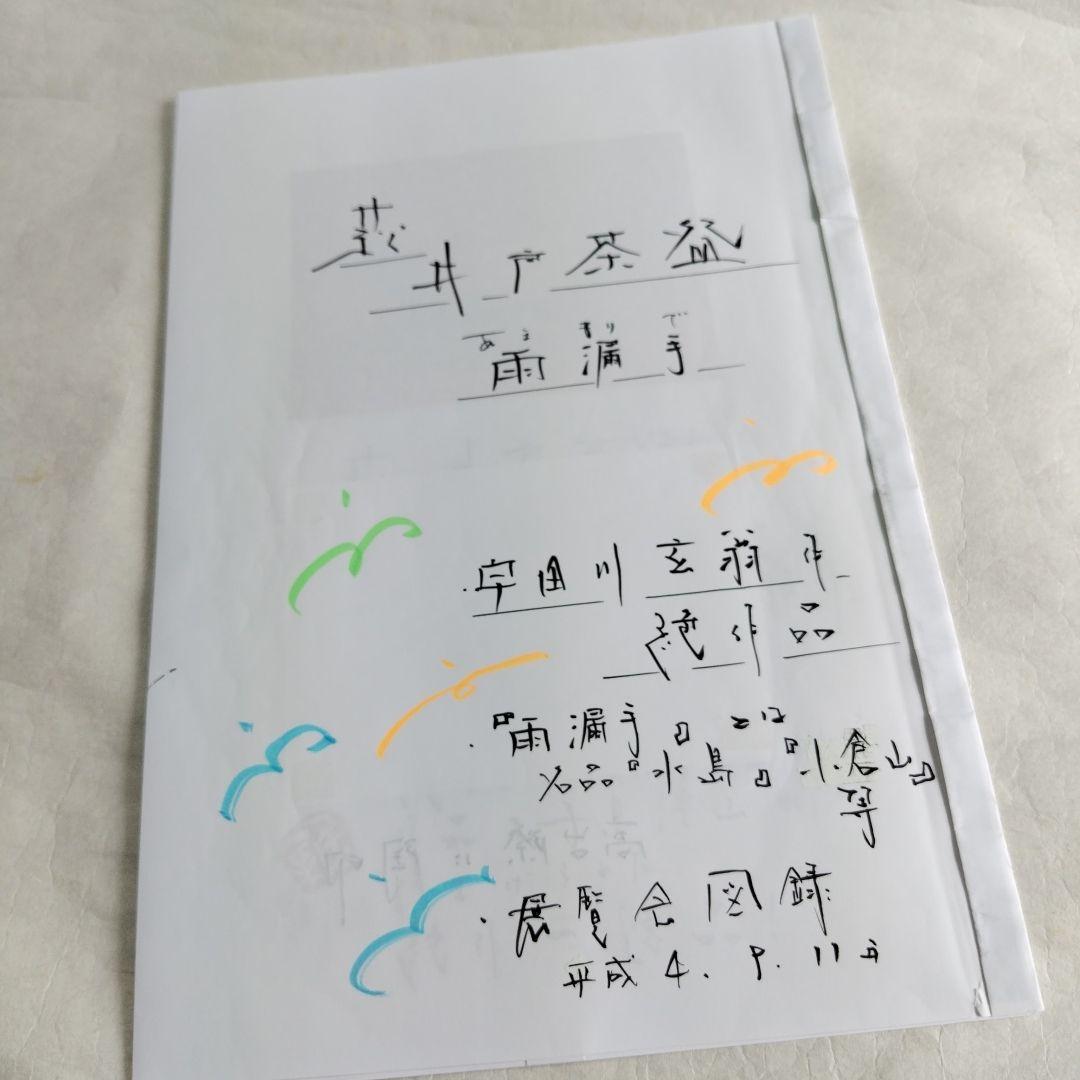 井戸茶盌
あまもりで
雨漏手
・宇田川玄翁作
絶作品
・『雨漏手』とは
名品『水島』『小倉山』
等
・展覧会図録
平成4.9.11